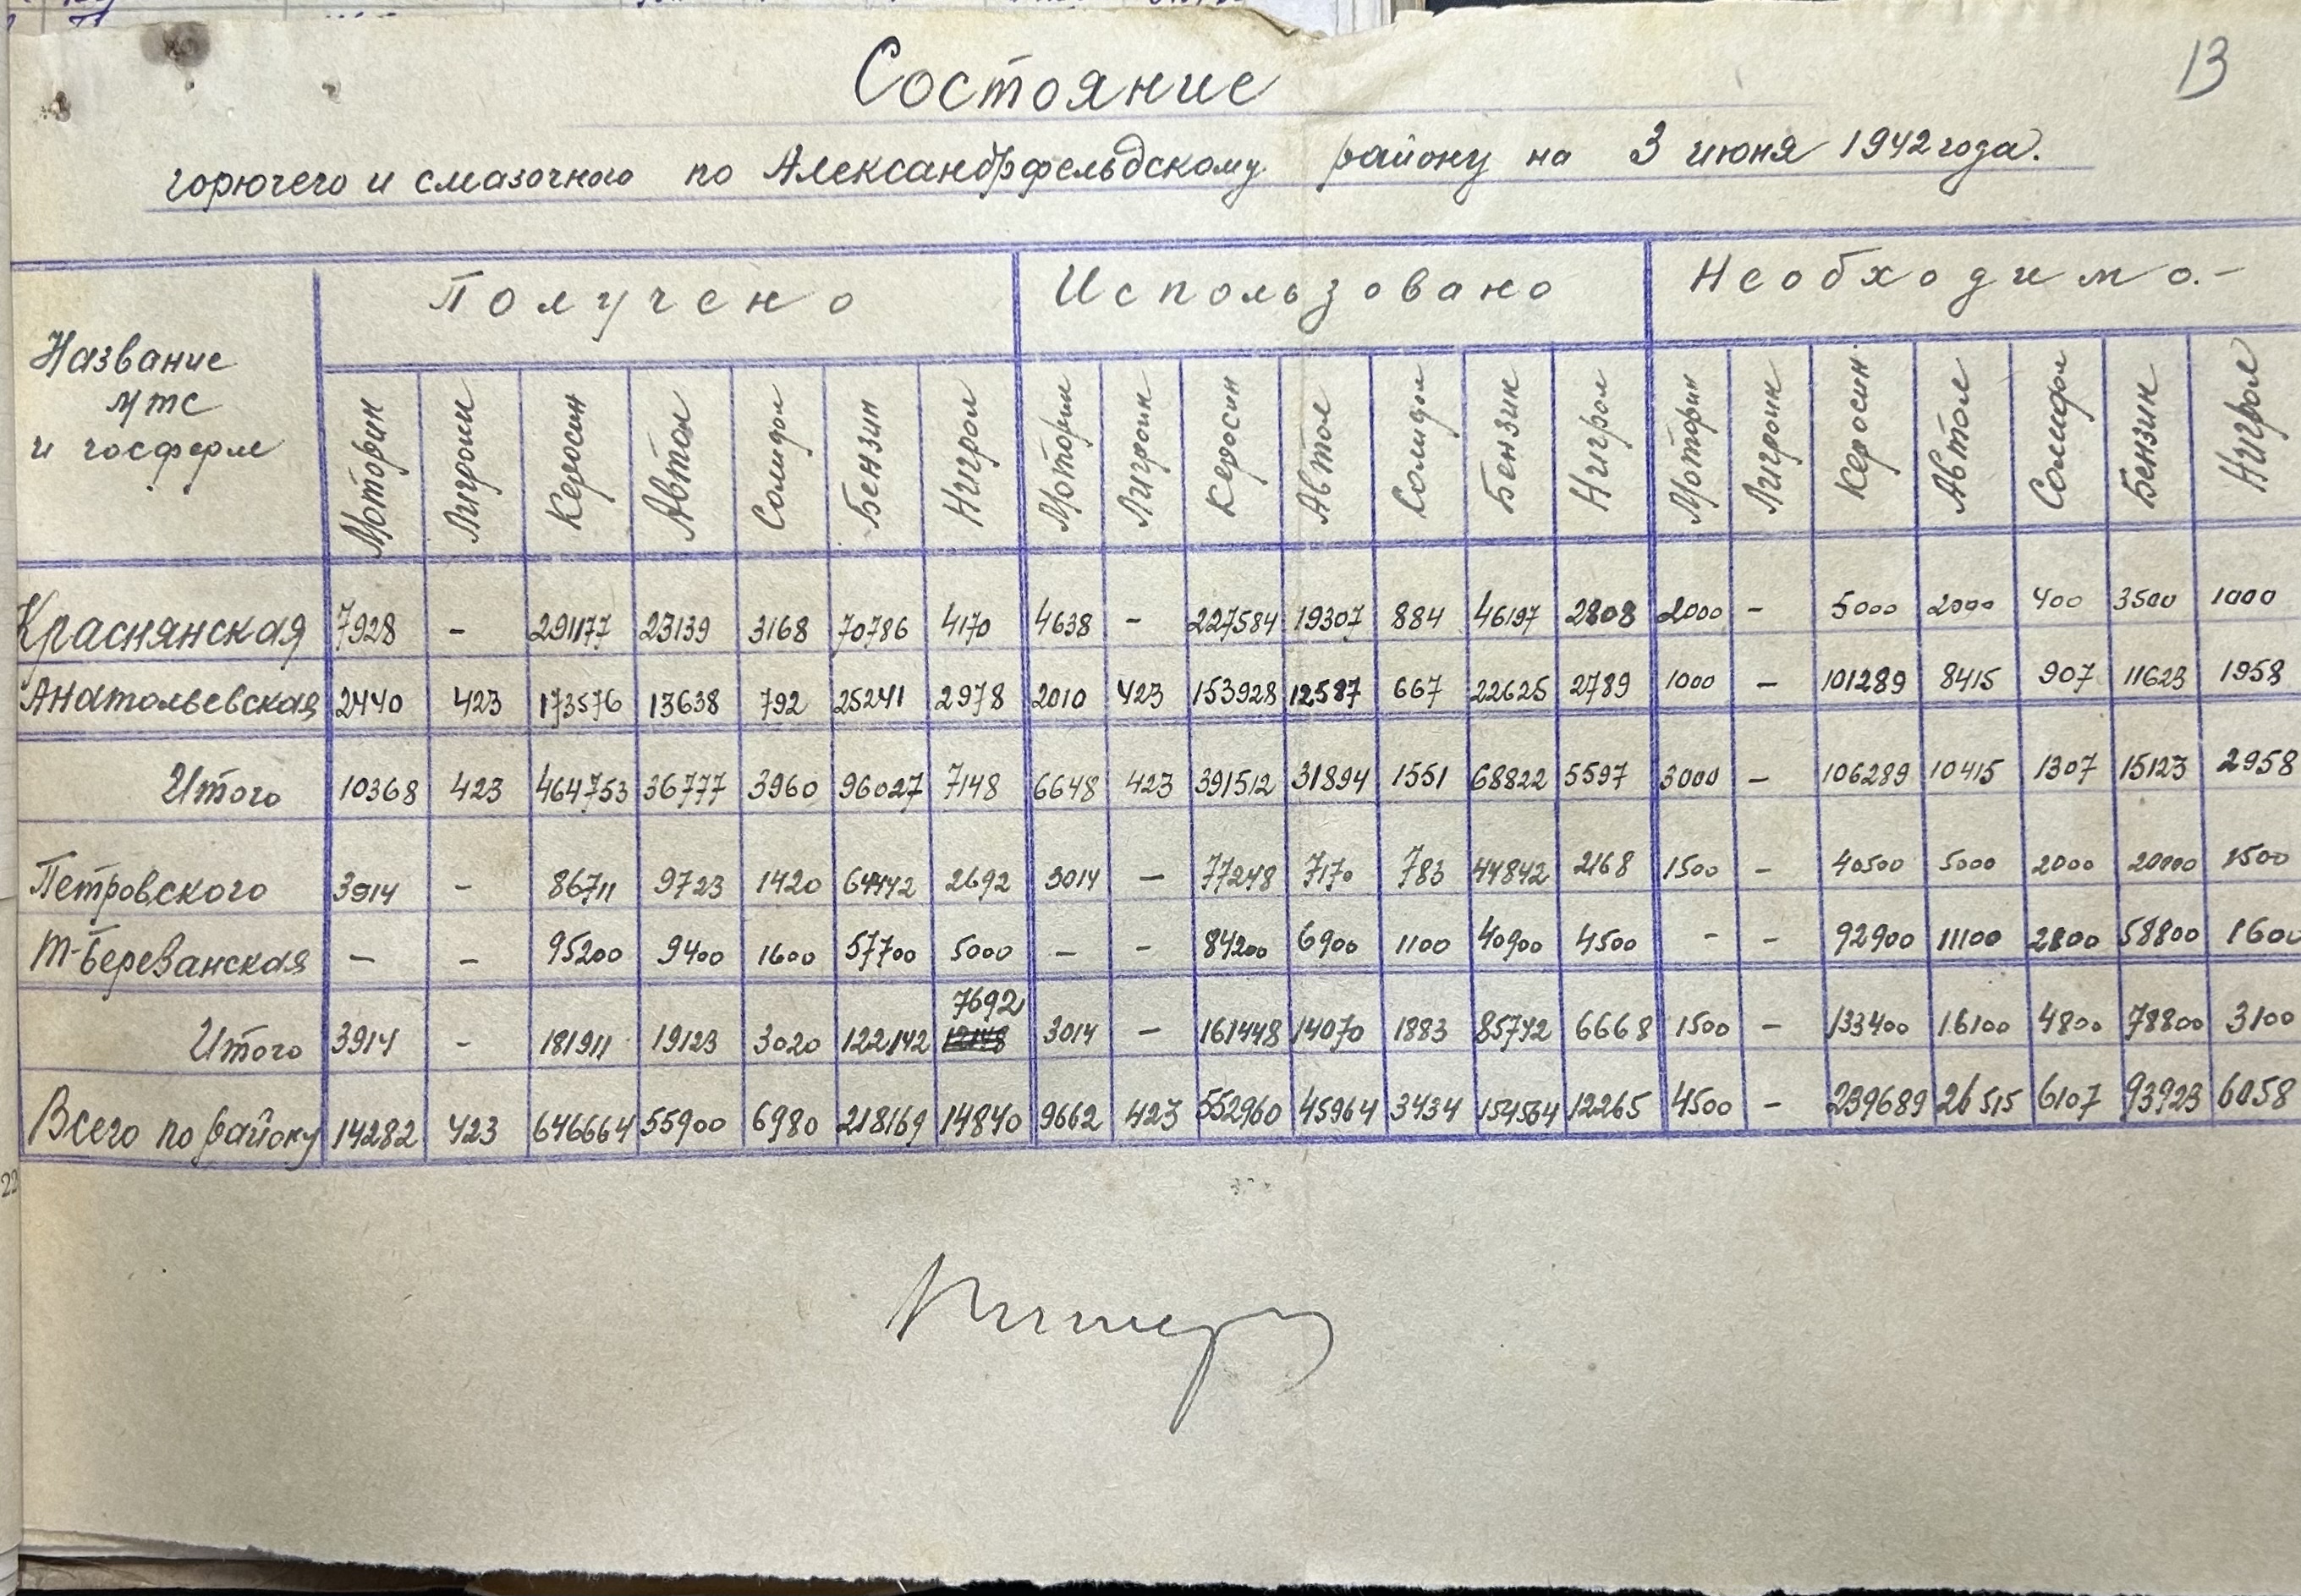 13
Состояние
горючего и смазочного по Александрфельдскому району на 3 июня 1942 года.
Название мтс и госферм | Получено | Использовано | Необходимо.-
Моторин | Лигроин | Керосин | Автол | Солидол | Бензин | Нигрол | Моторин | Лигроин | Керосин | Автол | Солидол | Бензин | Нигрол | Моторин | Лигроин | Керосин | Автол | Солидол | Бензин | Нигрол
Краснянская | 7928 | - | 291177 | 23139 | 3168 | 70786 | 4170 | 4638 | - | 227584 | 19307 | 884 | 46197 | 2808 | 2000 | - | 5000 | 2000 | 400 | 3500 | 1000
Анатольевская | 2440 | 423 | 173576 | 13638 | 792 | 25241 | 2978 | 2010 | 423 | 153928 | 12587 | 667 | 22625 | 2789 | 1000 | - | 101289 | 8415 | 907 | 11623 | 1958
Итого | 10368 | 423 | 464753 | 36777 | 3960 | 96027 | 7148 | 6648 | 423 | 391512 | 31894 | 1551 | 68822 | 5597 | 3000 | - | 106289 | 10415 | 1307 | 15123 | 2958
Петровского | 3914 | - | 86711 | 9723 | 1420 | 64442 | 2692 | 3014 | - | 77248 | 7170 | 783 | 44842 | 2168 | 1500 | - | 40500 | 5000 | 2000 | 20000 | 1500
Т-Березанская | - | - | 95200 | 9400 | 1600 | 57700 | 5000 | - | - | 84200 | 6900 | 1100 | 40900 | 4500 | - | - | 92900 | 11100 | 2800 | 58800 | 1600
Итого | 3914 | - | 181911 | 19123 | 3020 | 122142 | 7692 | 3014 | - | 161448 | 14070 | 1883 | 85742 | 6668 | 1500 | - | 133400 | 16100 | 4800 | 78800 | 3100
Всего по району | 14282 | 423 | 646664 | 55900 | 6980 | 218169 | 14840 | 9662 | 423 | 552960 | 45964 | 3434 | 154564 | 12265 | 4500 | - | 239689 | 26515 | 6107 | 93923 | 6058